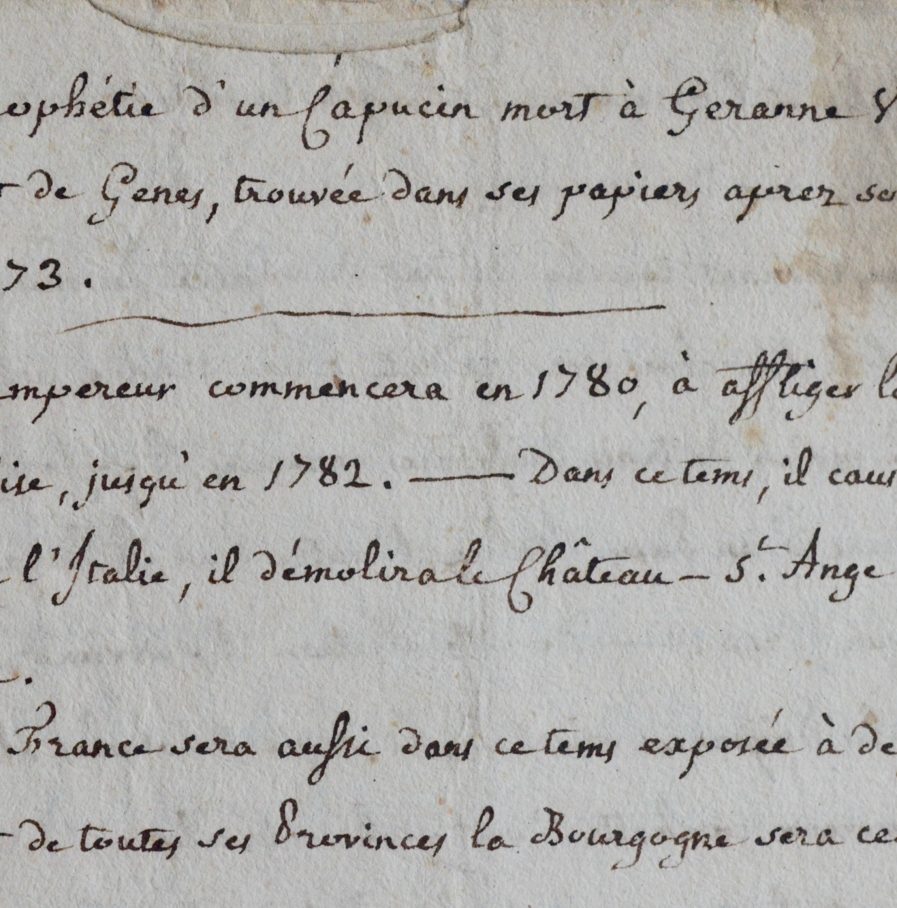 ophétie d'un Capucin mort à Geranne V
t de Genes, trouvée dans ses papiers aprez so
73.
mpereur commencera en 1780, à affliger l
ise, jusqu'en 1782. — Dans ce tems, il caus
l'Italie, il démolira le Château - St. Ange
France sera aussi dans ce tems exposée à de
t de toutes ses Provinces la Bourgogne sera ce